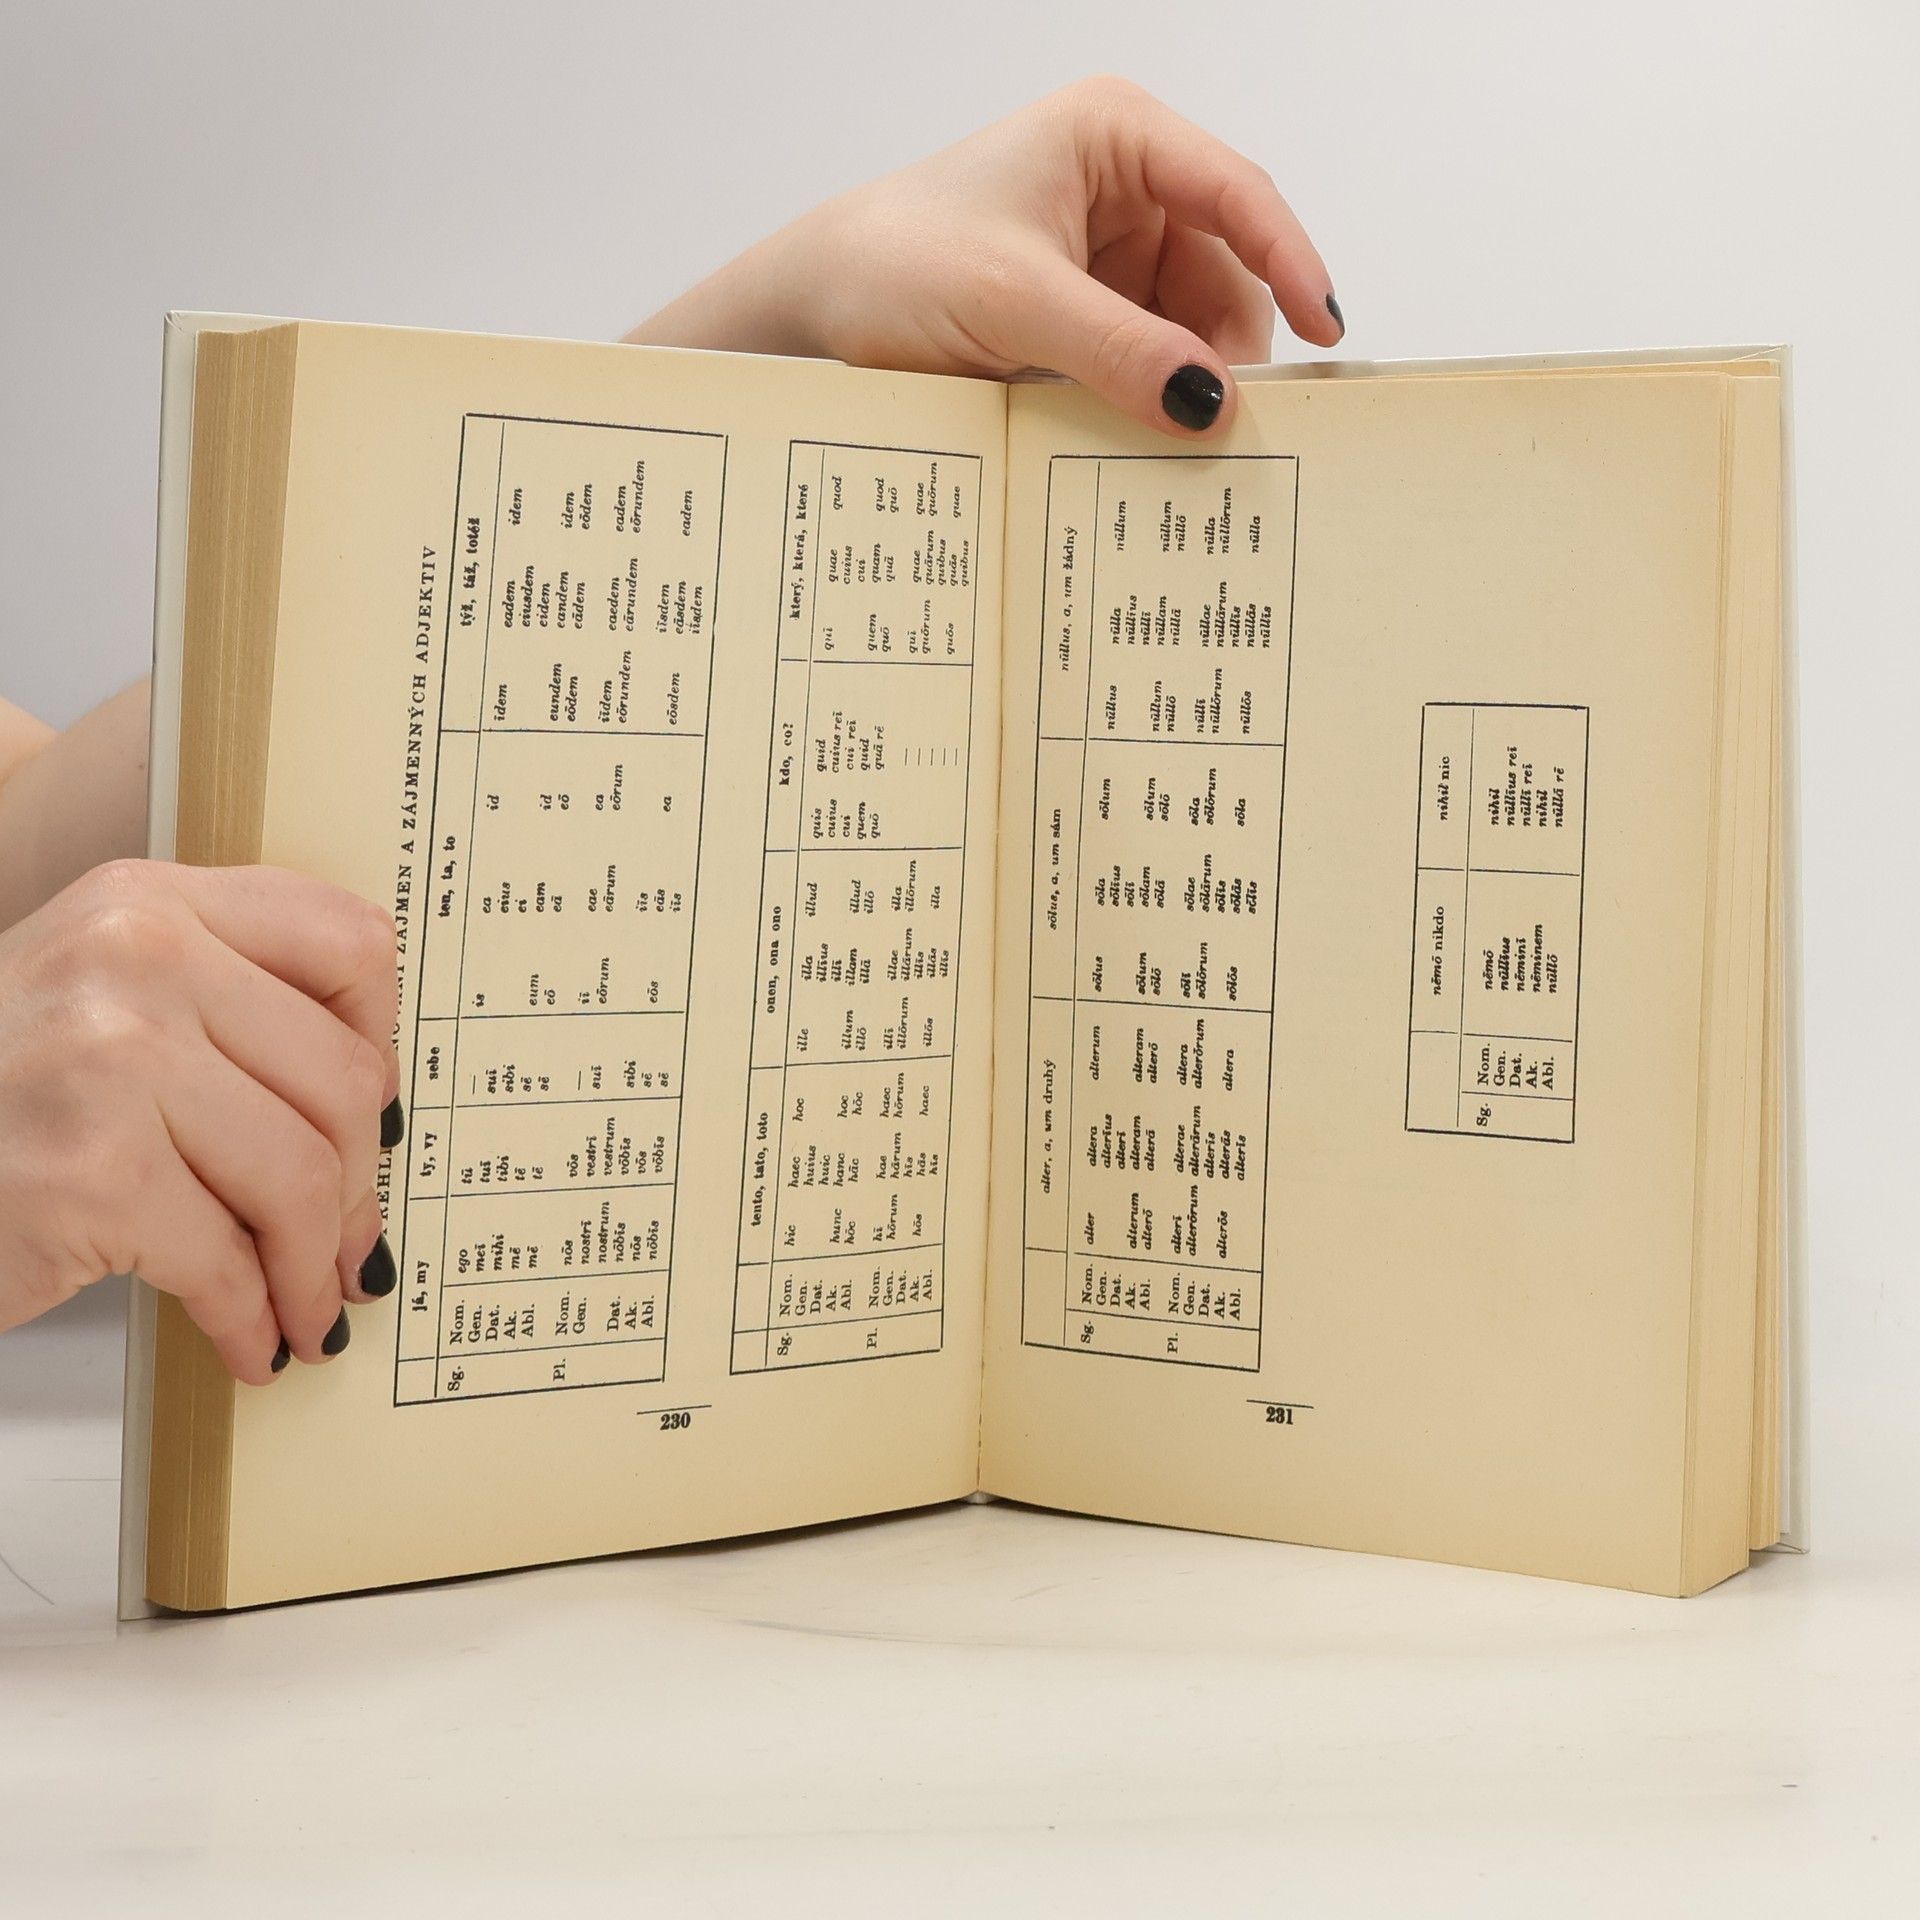 ZÁJMEN A ZÁJMENNÝCH ADJEKTIV
já, my ty, vy sebe ten, ta, to týž, táž, totéž
Sg. Nom. ego tū — is ea id īdem eadem idem
Gen. meī tuī suī eius eiusdem
Dat. mihi tibi sibi ei eidem
Ak. mē tē sē eum eam id eundem eandem idem
Abl. mē tē sē eō eā eō eōdem eādem eōdem
Pl. Nom. nōs vōs — iī eae ea iīdem eaedem eadem
Gen. nostrī vestrī suī eōrum eārum eōrum eōrundem eārundem eōrundem
nostrum vestrum
Dat. nōbīs vōbīs sibi iīs iīsdem
Ak. nōs vōs sē eōs eās ea eōsdem eāsdem eadem
Abl. nōbīs vōbīs sē iīs iīsdem
tento, tato, toto onen, ona ono kdo, co? který, která, které
Sg. Nom. hic haec hoc ille illa illud quis quid quī quae quod
Gen. huius illīus cuius cuius reī cuius
Dat. huic illī cui cui reī cui
Ak. hunc hanc hoc illum illam illud quem quid quem quam quod
Abl. hōc hāc hōc illō illā illō quō quā rē quō quā quō
Pl. Nom. hī hae haec illī illae illa — quī quae quae
Gen. hōrum hārum hōrum illōrum illārum illōrum — quōrum quārum quōrum
Dat. hīs illīs — quibus
Ak. hōs hās haec illōs illās illa — quōs quās quae
Abl. hīs illīs — quibus
230
alter, a, um druhý sōlus, a, um sám nūllus, a, um žádný
Sg. Nom. alter altera alterum sōlus sōla sōlum nūllus nūlla nūllum
Gen. alterīus sōlīus nūllīus
Dat. alterī sōlī nūllī
Ak. alterum alteram alteram sōlum sōlam sōlum nūllum nūllam nūllum
Abl. alterō alterā alterō sōlō sōlā sōlō nūllō nūllā nūllō
Pl. Nom. alterī alterae altera sōlī sōlae sōla nūllī nūllae nūlla
Gen. alterōrum alterārum alterōrum sōlōrum sōlārum sōlōrum nūllōrum nūllārum nūllōrum
Dat. alterīs sōlīs nūllīs
Ak. alterōs alterās altera sōlōs sōlās sōla nūllōs nūllās nūlla
Abl. alterīs sōlīs nūllīs
nēmō nikdo nihil nic
Sg. Nom. nēmō nihil
Gen. nūllīus nūllīus reī
Dat. nēminī nūllī reī
Ak. nēminem nihil
Abl. nūllō nūllā rē
231